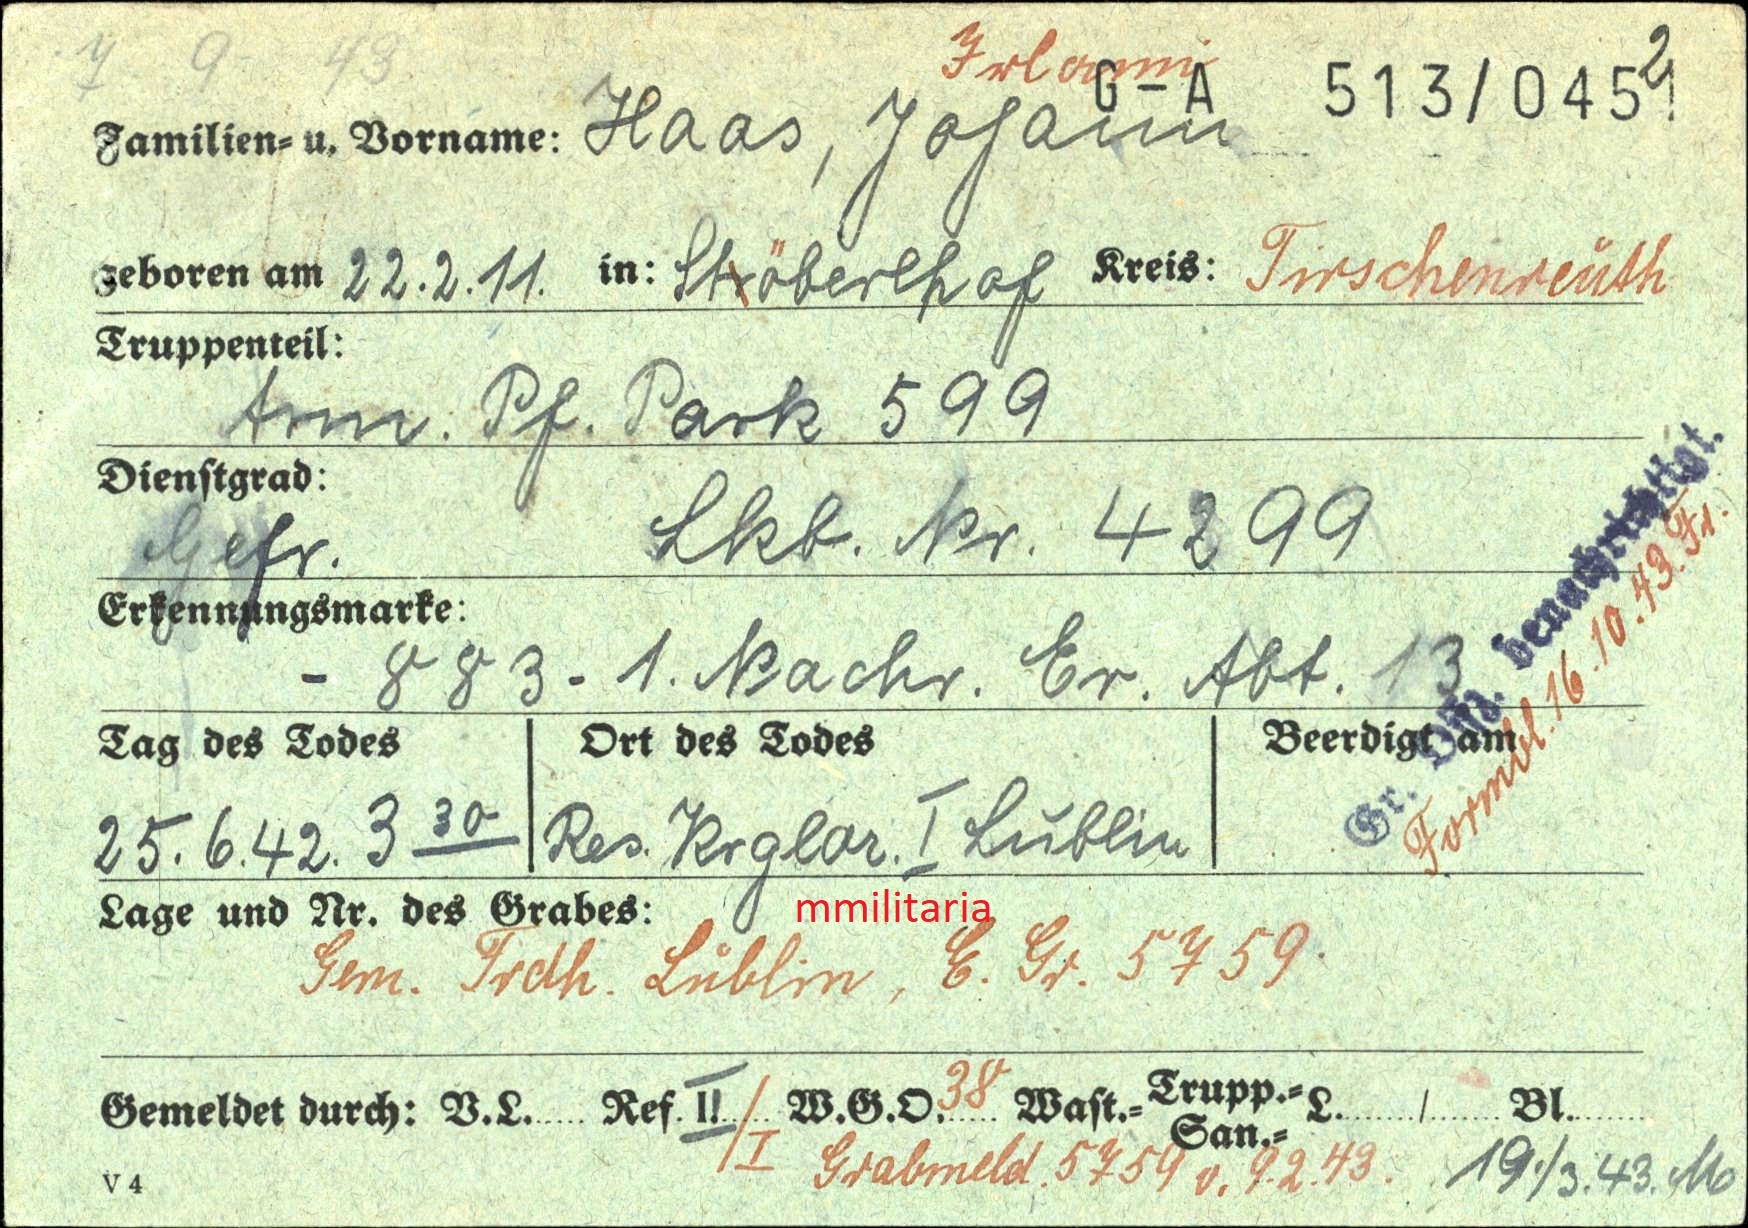 7 9 43
2
G-A 513/0451
Familien- u. Vorname: Haas, Johann
geboren am 22.2.11. in: Ströberlhof Kreis: Tirschenreuth
Truppenteil:
Arm. Pf. Park 599
Dienstgrad:
Gefr. Lkb. Nr. 4299
Erkennungsmarke:
- 883 - 1. Nachr. Er. Abt. 13
Gr. Offz. benachrichtigt.
Formbl. 16.10.43. Fr.
Tag des Todes Ort des Todes Beerdigt am
25.6.42. 3 30 Res. Krglaz. I Lublin
Lage und Nr. des Grabes:
mmilitaria
Gem. Frdh. Lublin, E. Gr. 5759.
Gemeldet durch: V.L. Ref. II / I W.G.O. 38 Wast.- Trupp.- San.- L. / Bl.
Grabmeld. 5759 v. 9.2.43. 19./3.43. Mo
V 4